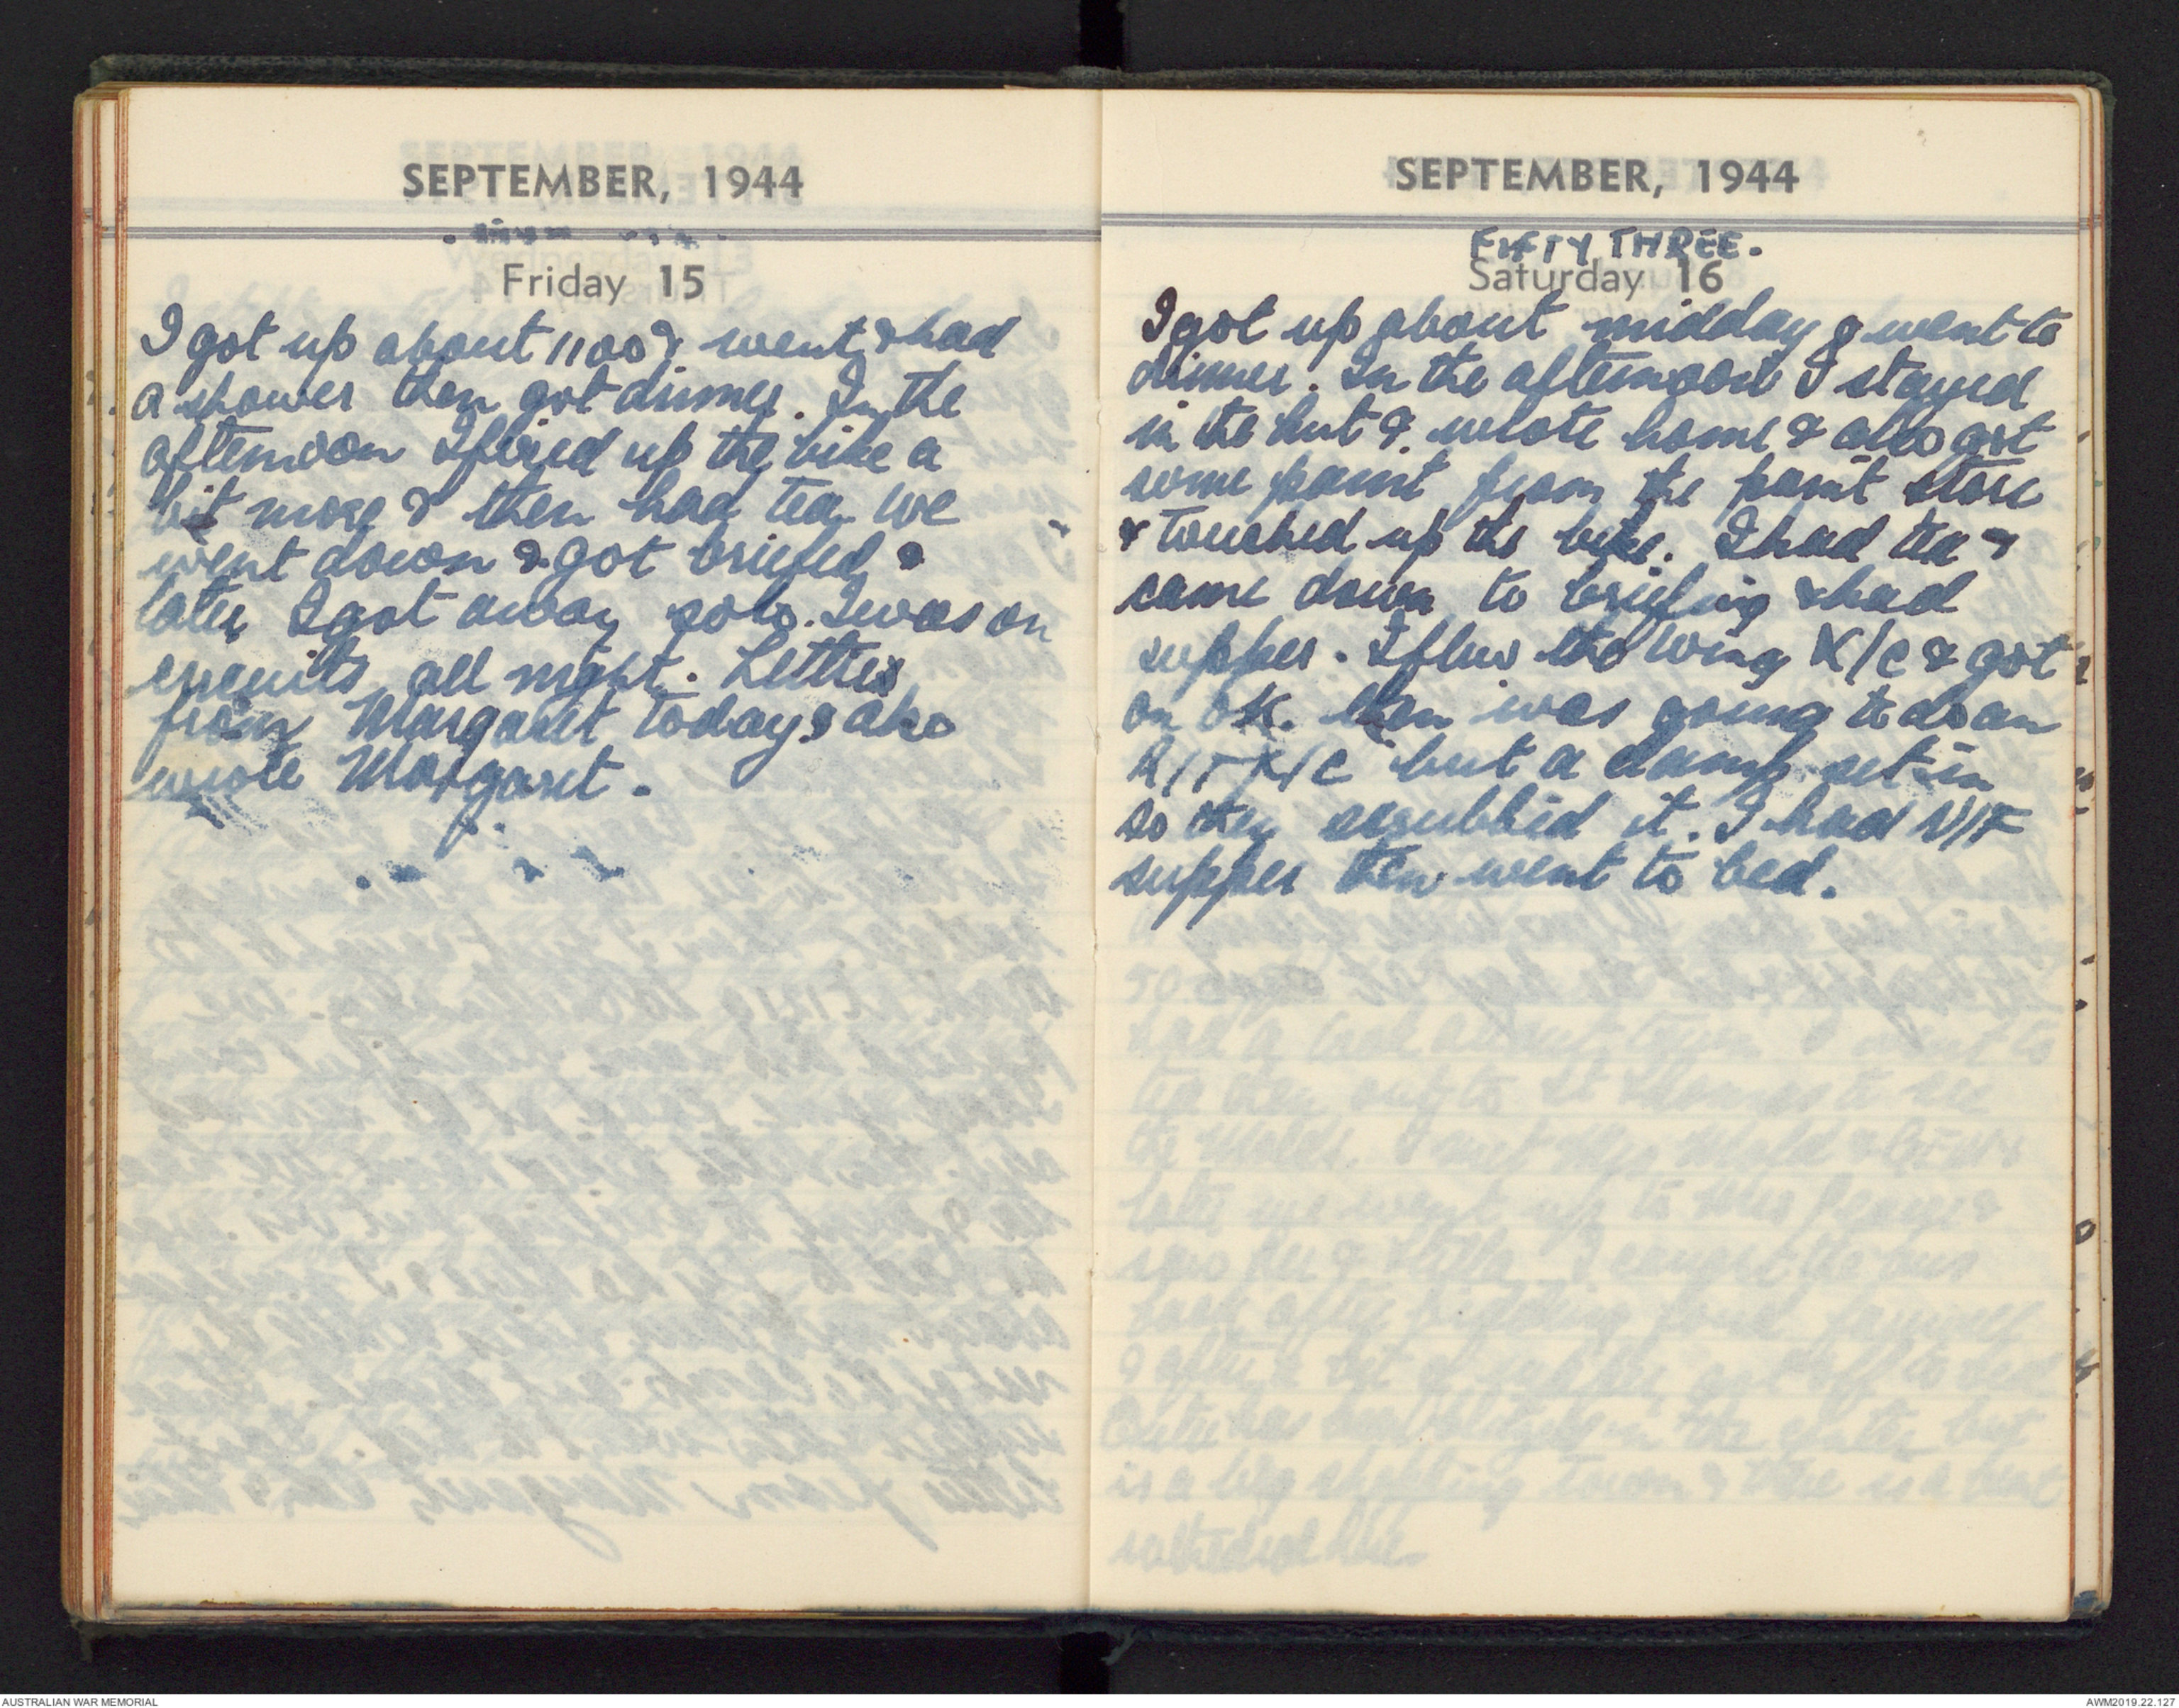 SEPTEMBER, 1944
Friday 15
I got up about 1100 & went & had
a shower then got dinner. In the
afternoon I fixed up the bike a
bit more & then had tea. We
went down & got briefed &
later I got away solo. I was on
circuits all night. Letter
from Margaret today & also
wrote Margaret.
SEPTEMBER, 1944
FIFTY THREE.
Saturday 16
I got up about midday & went to
dinner. In the afternoon I stayed
in the hut & wrote home & also got
some paint from the paint store
& touched up the bike. I had tea &
came down to briefing & had
supper. I flew the Wing X/C & got
on OK. then was going to do an
R/T X/C but a damp set in
so they scrubbed it. I had N/F
supper then went to bed.
AUSTRALIAN WAR MEMORIAL
AWM2019.22.127